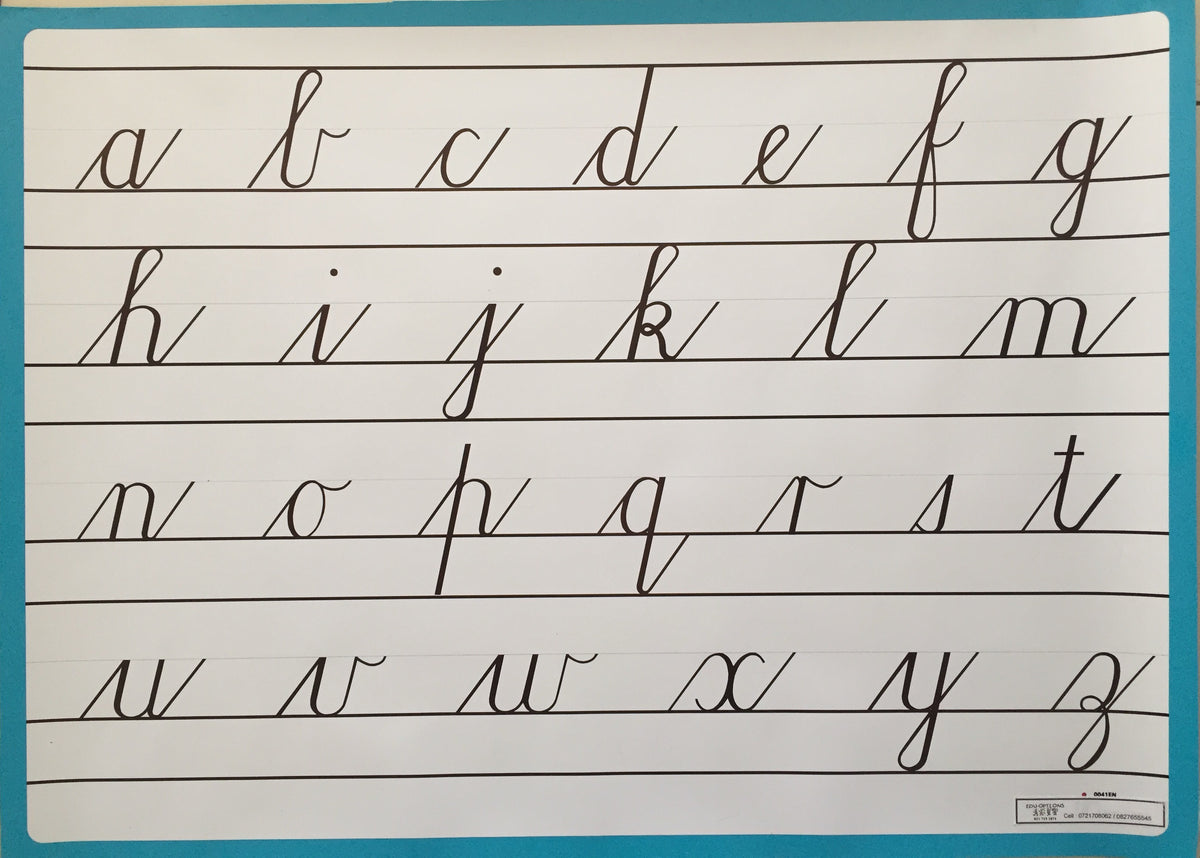 a b c d e f g
h i j k l m
n o p q r s t
u v w x y z
0041EN
EDU-OPTIONS
Cell : 0721708062 / 0827655545